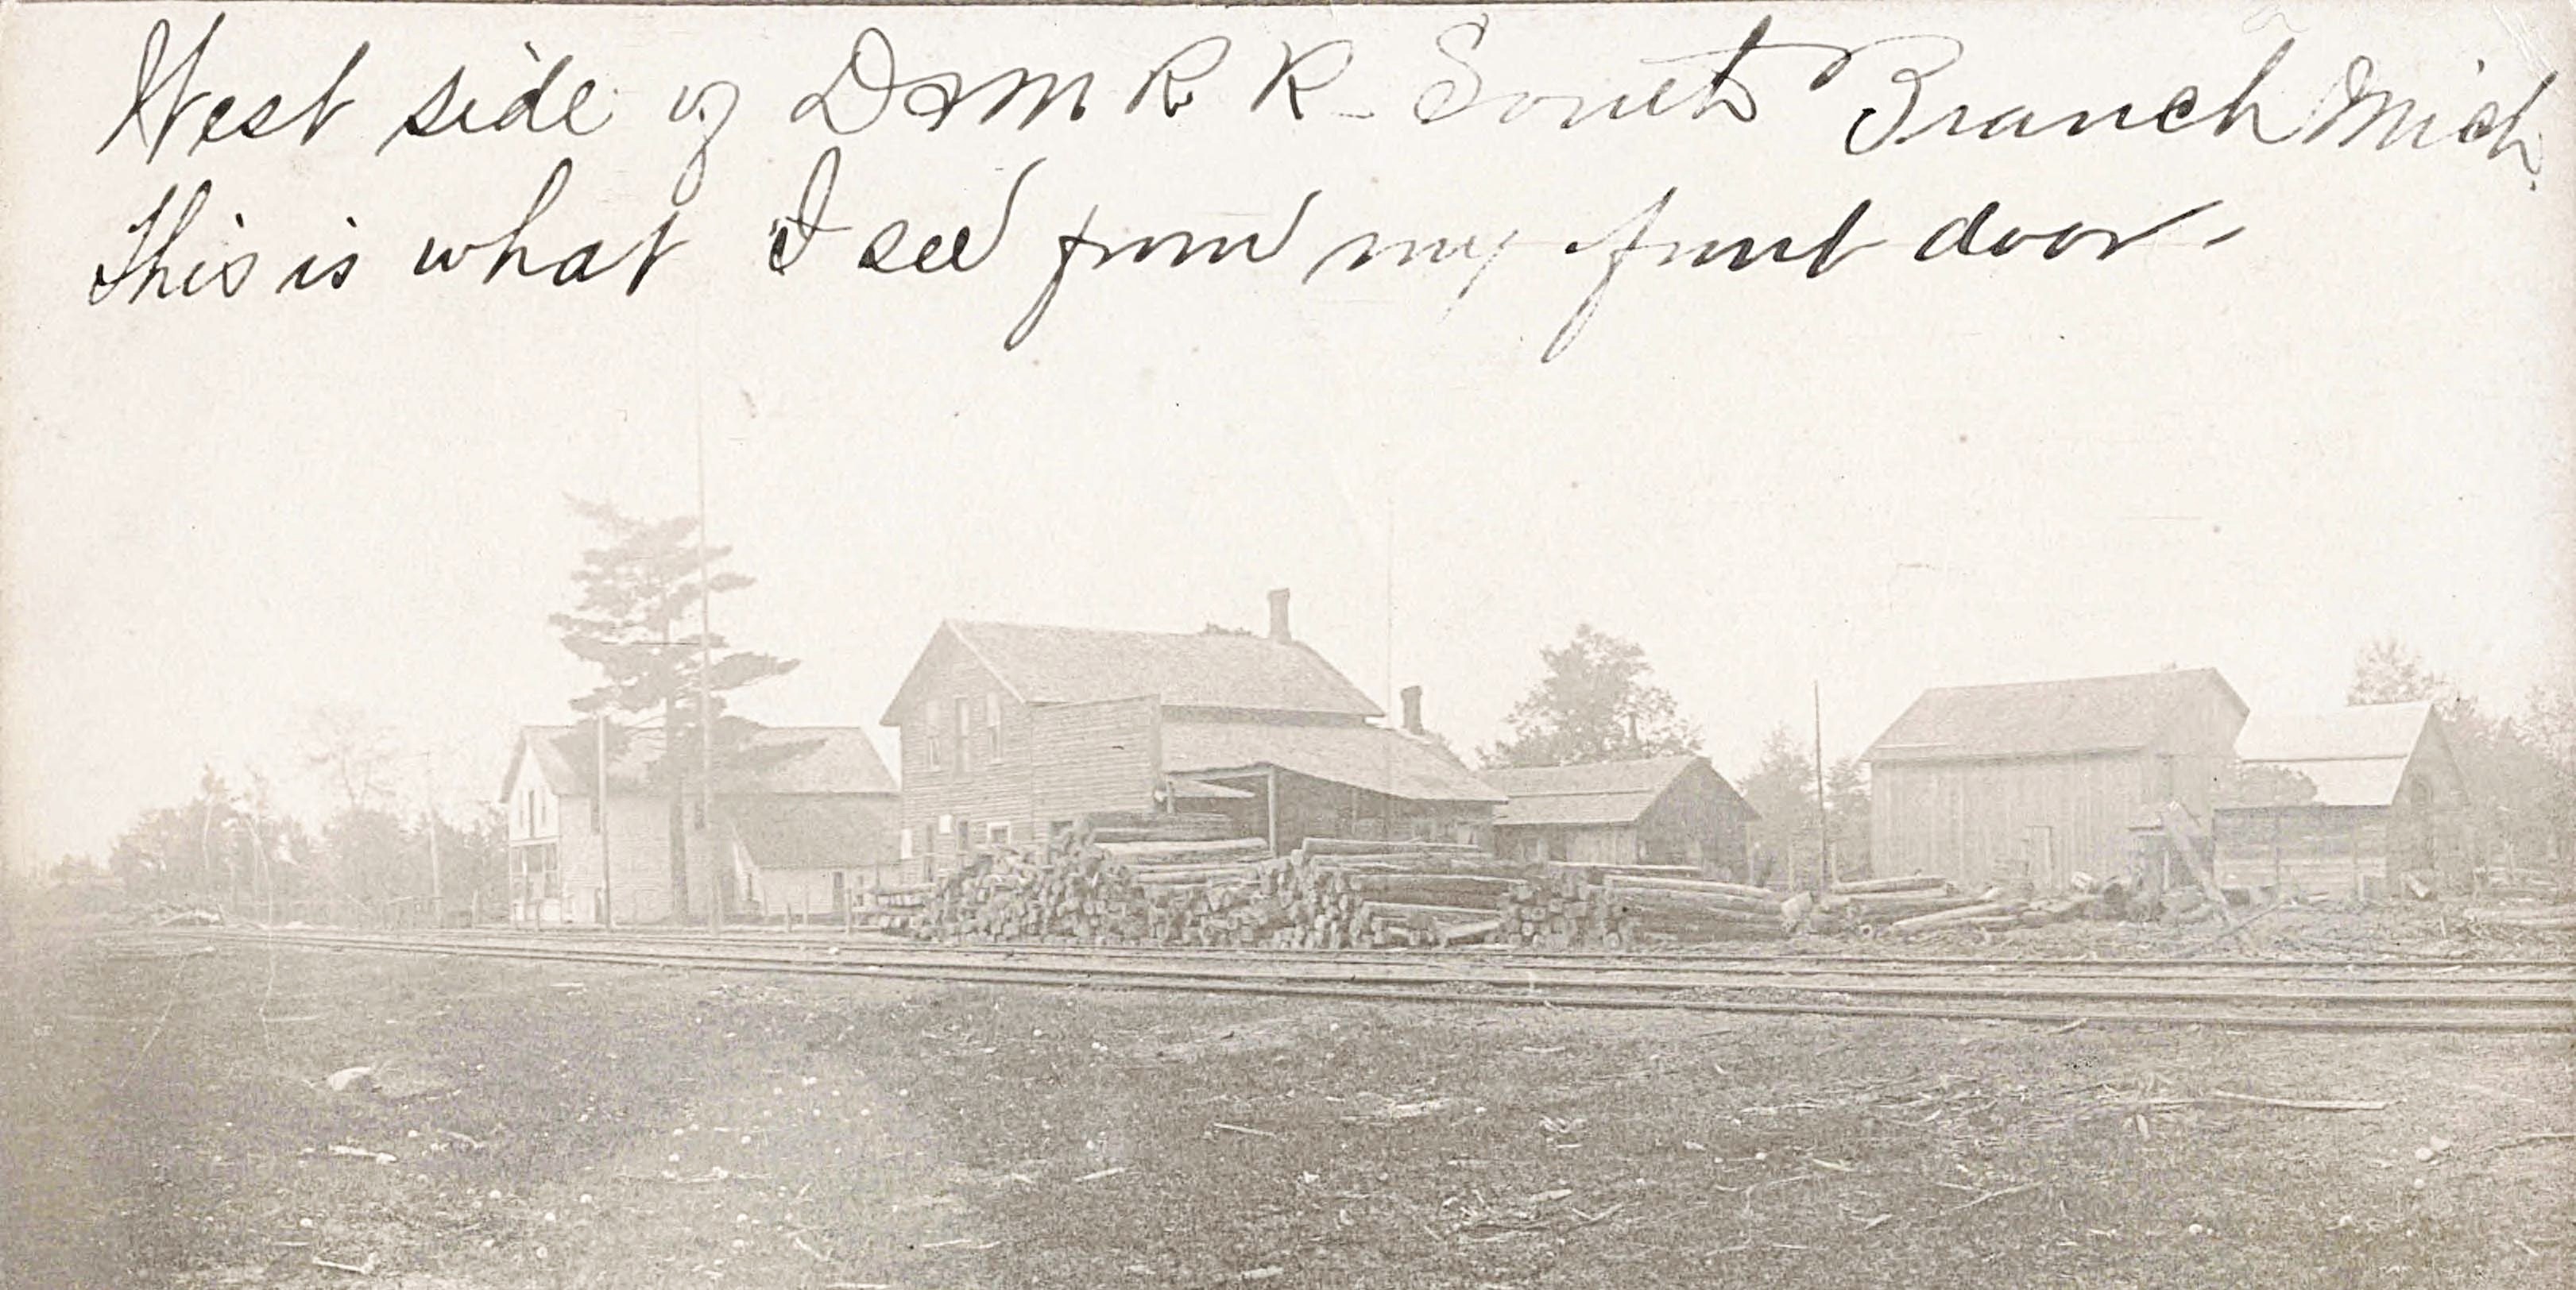 West side of D & M R R - South Branch Mich.
This is what I see from my front door -